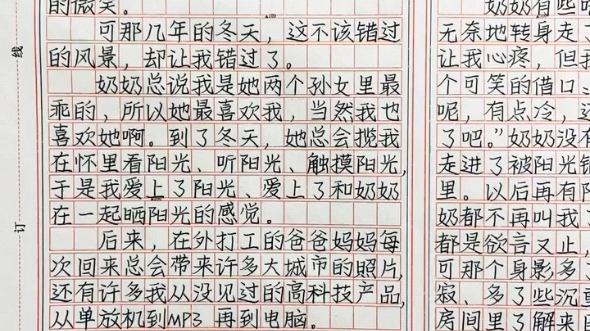 的微笑。
可那几年的冬天，这不该错过
的风景，却让我错过了。
奶奶总说我是她两个孙女里最
乖的，所以她最喜欢我，当然我也
喜欢她啊。到了冬天，她总会揽我
在怀里看阳光、听阳光、触摸阳光，
于是我爱上了阳光、爱上了和奶奶
在一起晒阳光的感觉。
后来，在外打工的爸爸妈妈每
次回来总会带来许多大城市的照片，
还有许多我从没见过的高科技产品，
从单放机到MP3再到电脑。
线
订
奶奶有些
无奈地转身走、
让我心疼，但我
个可笑的借口、
呢，有点冷，还
了吧。”奶奶没有
走进了被阳光
里。以后再有阳
奶都不再叫我了
都是欲言又止，
可那个身影多了
寂、多了些沉
房间里了解来